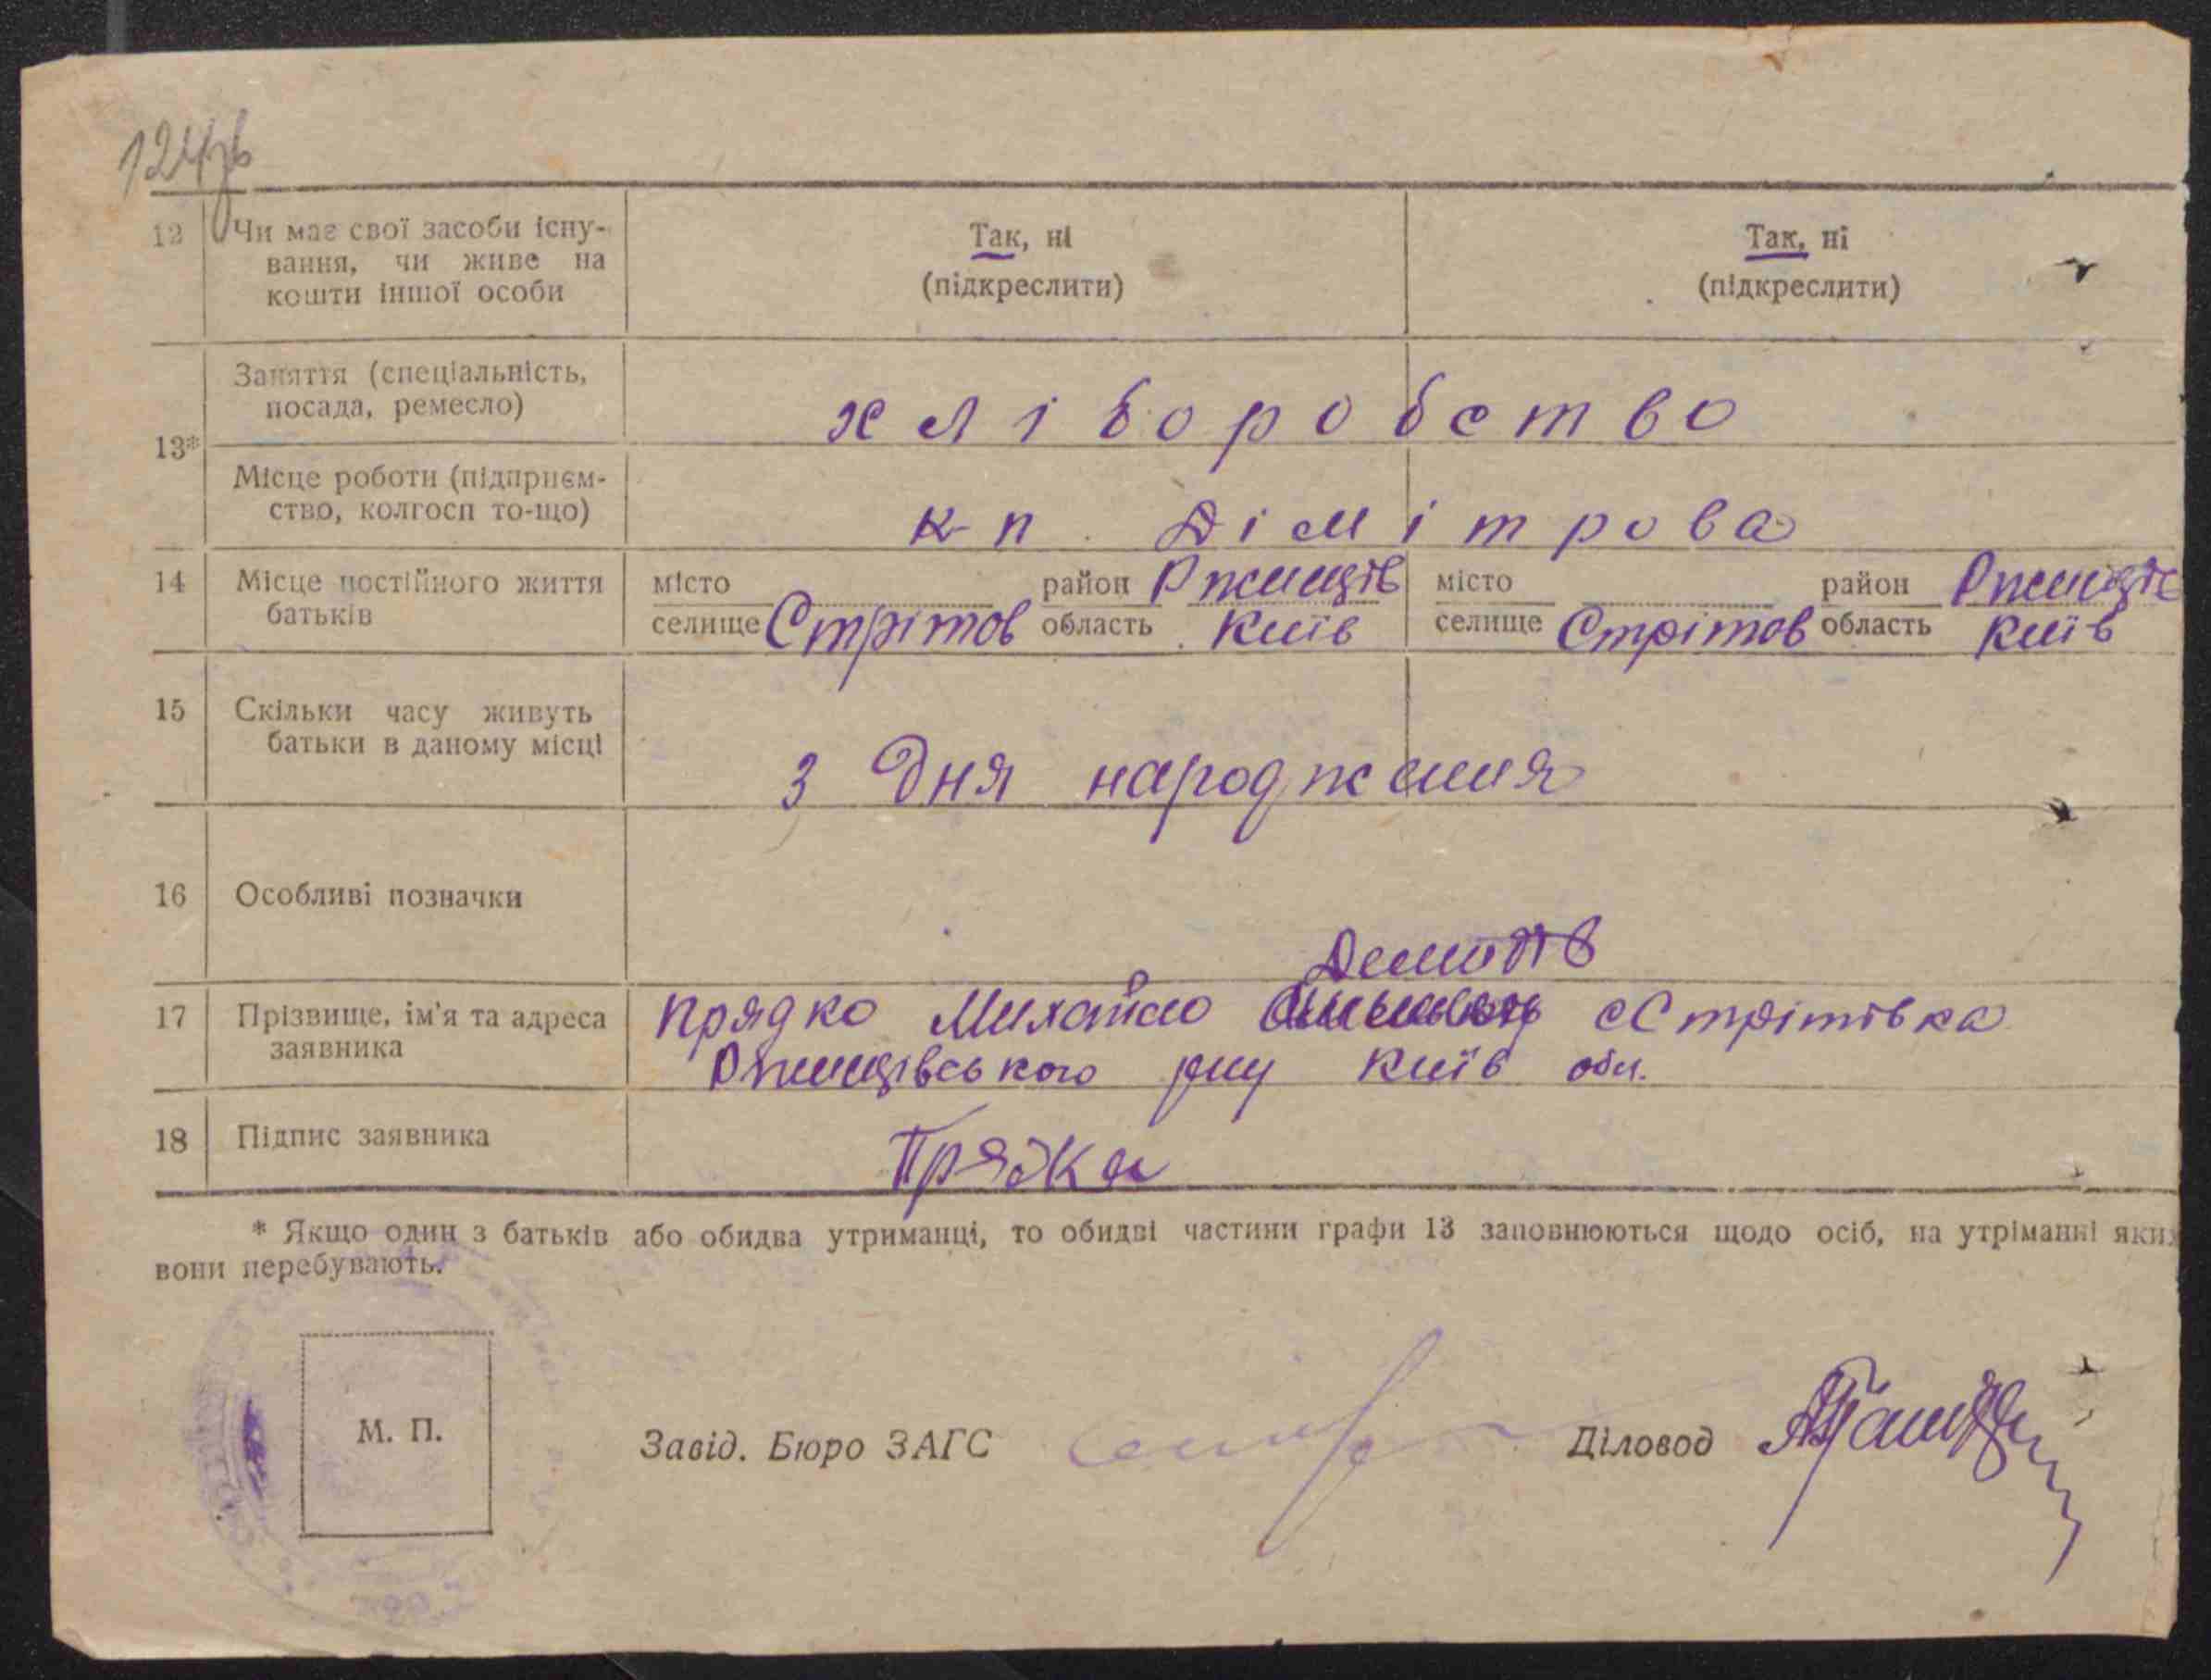 12
Чи має свої засоби існу-
вання, чи живе на
кошти іншої особи
Так, ні
(підкреслити)
Так, ні
(підкреслити)
13*
Заняття (спеціальність,
посада, ремесло)
хліборобство
Місце роботи (підприєм-
ство, колгосп то-що)
к-п Дімітрова
14
Місце постійного життя
батьків
місто район Ржищів
селище Стрітов область Київ
місто район Ржищів
селище Стрітов область Київ
15
Скільки часу живуть
батьки в даному місці
з Дня народження
16
Особливі позначки
17
Прізвище, ім'я та адреса
заявника
Демидів
Прядко Михайло с Стрітівка
Ржищівського р-ну Київ обл.
18
Підпис заявника
Прядка
* Якщо один з батьків або обидва утриманці, то обидві частини графи 13 заповнюються щодо осіб, на утріманні яких
вони перебувають.
М. П.
Завід. Бюро ЗАГС
Діловод